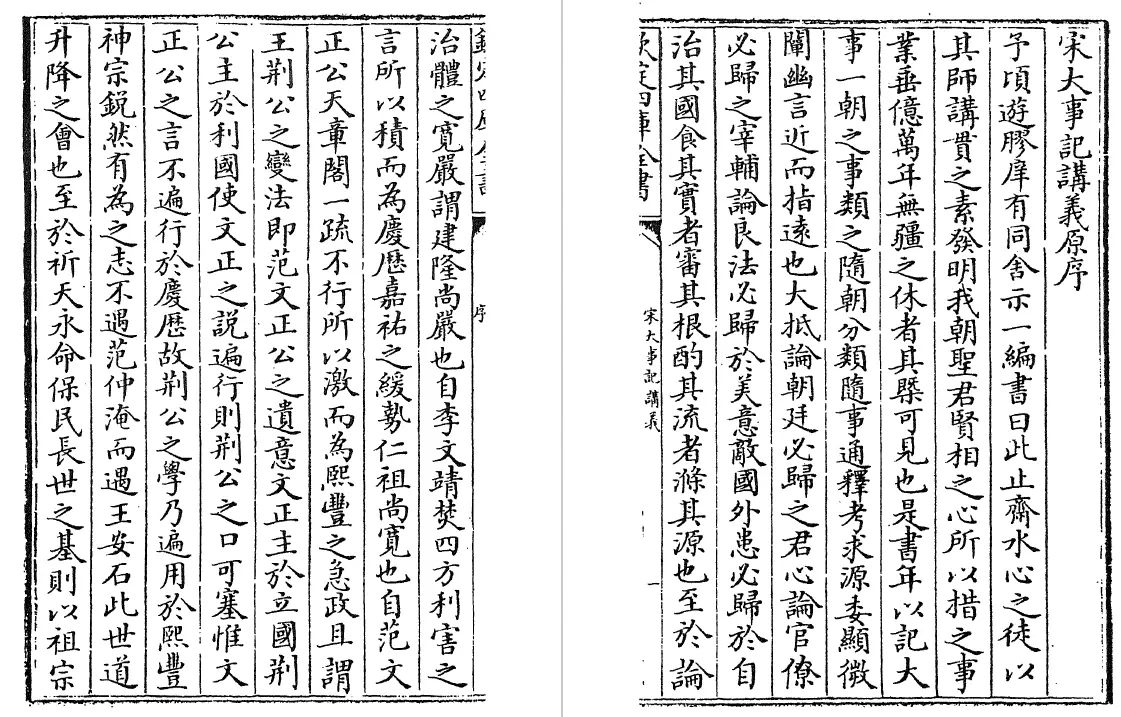 宋大事記講義原序
予頃遊膠庠有同舍示一編書曰此止齋水心之徒以
其師講貫之素發明我朝聖君賢相之心所以措之事
業垂億萬年無疆之休者其槩可見也是書年以記大
事一朝之事類之隨朝分類隨事通釋考求源委顯微
闡幽言近而指遠也大抵論朝廷必歸之君心論官僚
必歸之宰輔論良法必歸於美意敵國外患必歸於自
治其國食其實者審其根酌其流者滌其源也至於論
欽定四庫全書
宋大事記講義
一
欽定四庫全書
序
治體之寛嚴謂建隆尚嚴也自李文靖焚四方利害之
言所以積而為慶歴嘉祐之緩勢仁祖尚寛也自范文
正公天章閣一疏不行所以激而為熙豐之急政且謂
王荆公之變法即范文正公之遺意文正主於立國荆
公主於利國使文正之説遍行則荆公之口可塞惟文
正公之言不遍行於慶歴故荆公之學乃遍用於熙豐
神宗鋭然有為之志不遇范仲淹而遇王安石此世道
升降之會也至於祈天永命保民長世之基則以祖宗